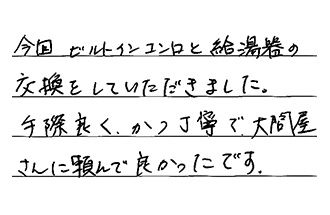 今回 ビルトインコンロと給湯器の
交換をしていただきました。
手際良く、かつ丁寧で、大問屋
さんに頼んで良かったです。